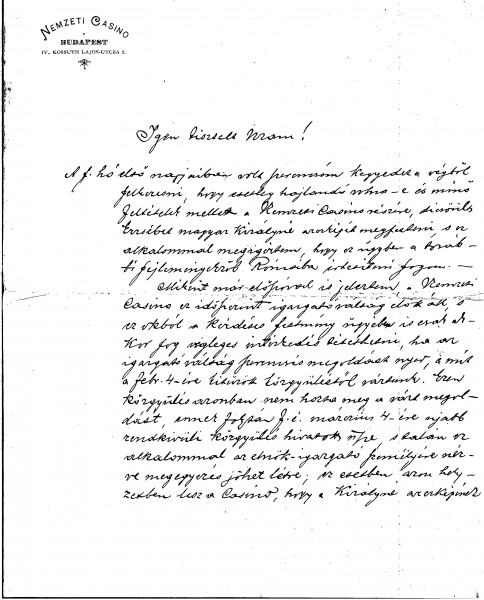 NEMZETI CASINO
BUDAPEST
IV., KOSSUTH LAJOS-UTCZA 5.
Igen tisztelt Uram!
A f. hó első napjaiban volt szerencsém kegyedet a végből
felkeresni, hogy esetleg hajlandó volna-e és minő
feltételek mellett a Nemzeti Casino részére, dicsőült
Erzsébet magyar Királyné arczképét megfesteni, s ez
alkalommal megigértem, hogy az ügyben a továb-
bi fejleményekről Rómába értesíteni fogom. —
Miként már élőszóval is jeleztem, a Nemzeti
Casino ez időszerint igazgató válság előtt áll, s
ez okból a kérdéses festmény ügyében is csak ak-
kor fog végleges intézkedés tétethetni, ha az
igazgató válság szerencsés megoldást nyer, a mit
a febr. 4-ére kitűzött közgyűléstől vártunk. Ezen
közgyűlés azonban nem hozta meg a várt megol-
dást, ennek folytán f. é. márczius 4-ére ujabb
rendkivüli közgyűlés hivatott össze, s talán ez
alkalommal az elnök-igazgató személyére néz-
ve megegyezés jöhet létre; ez esetben azon hely-
zetben lesz a Casino, hogy a Királyné arczképének